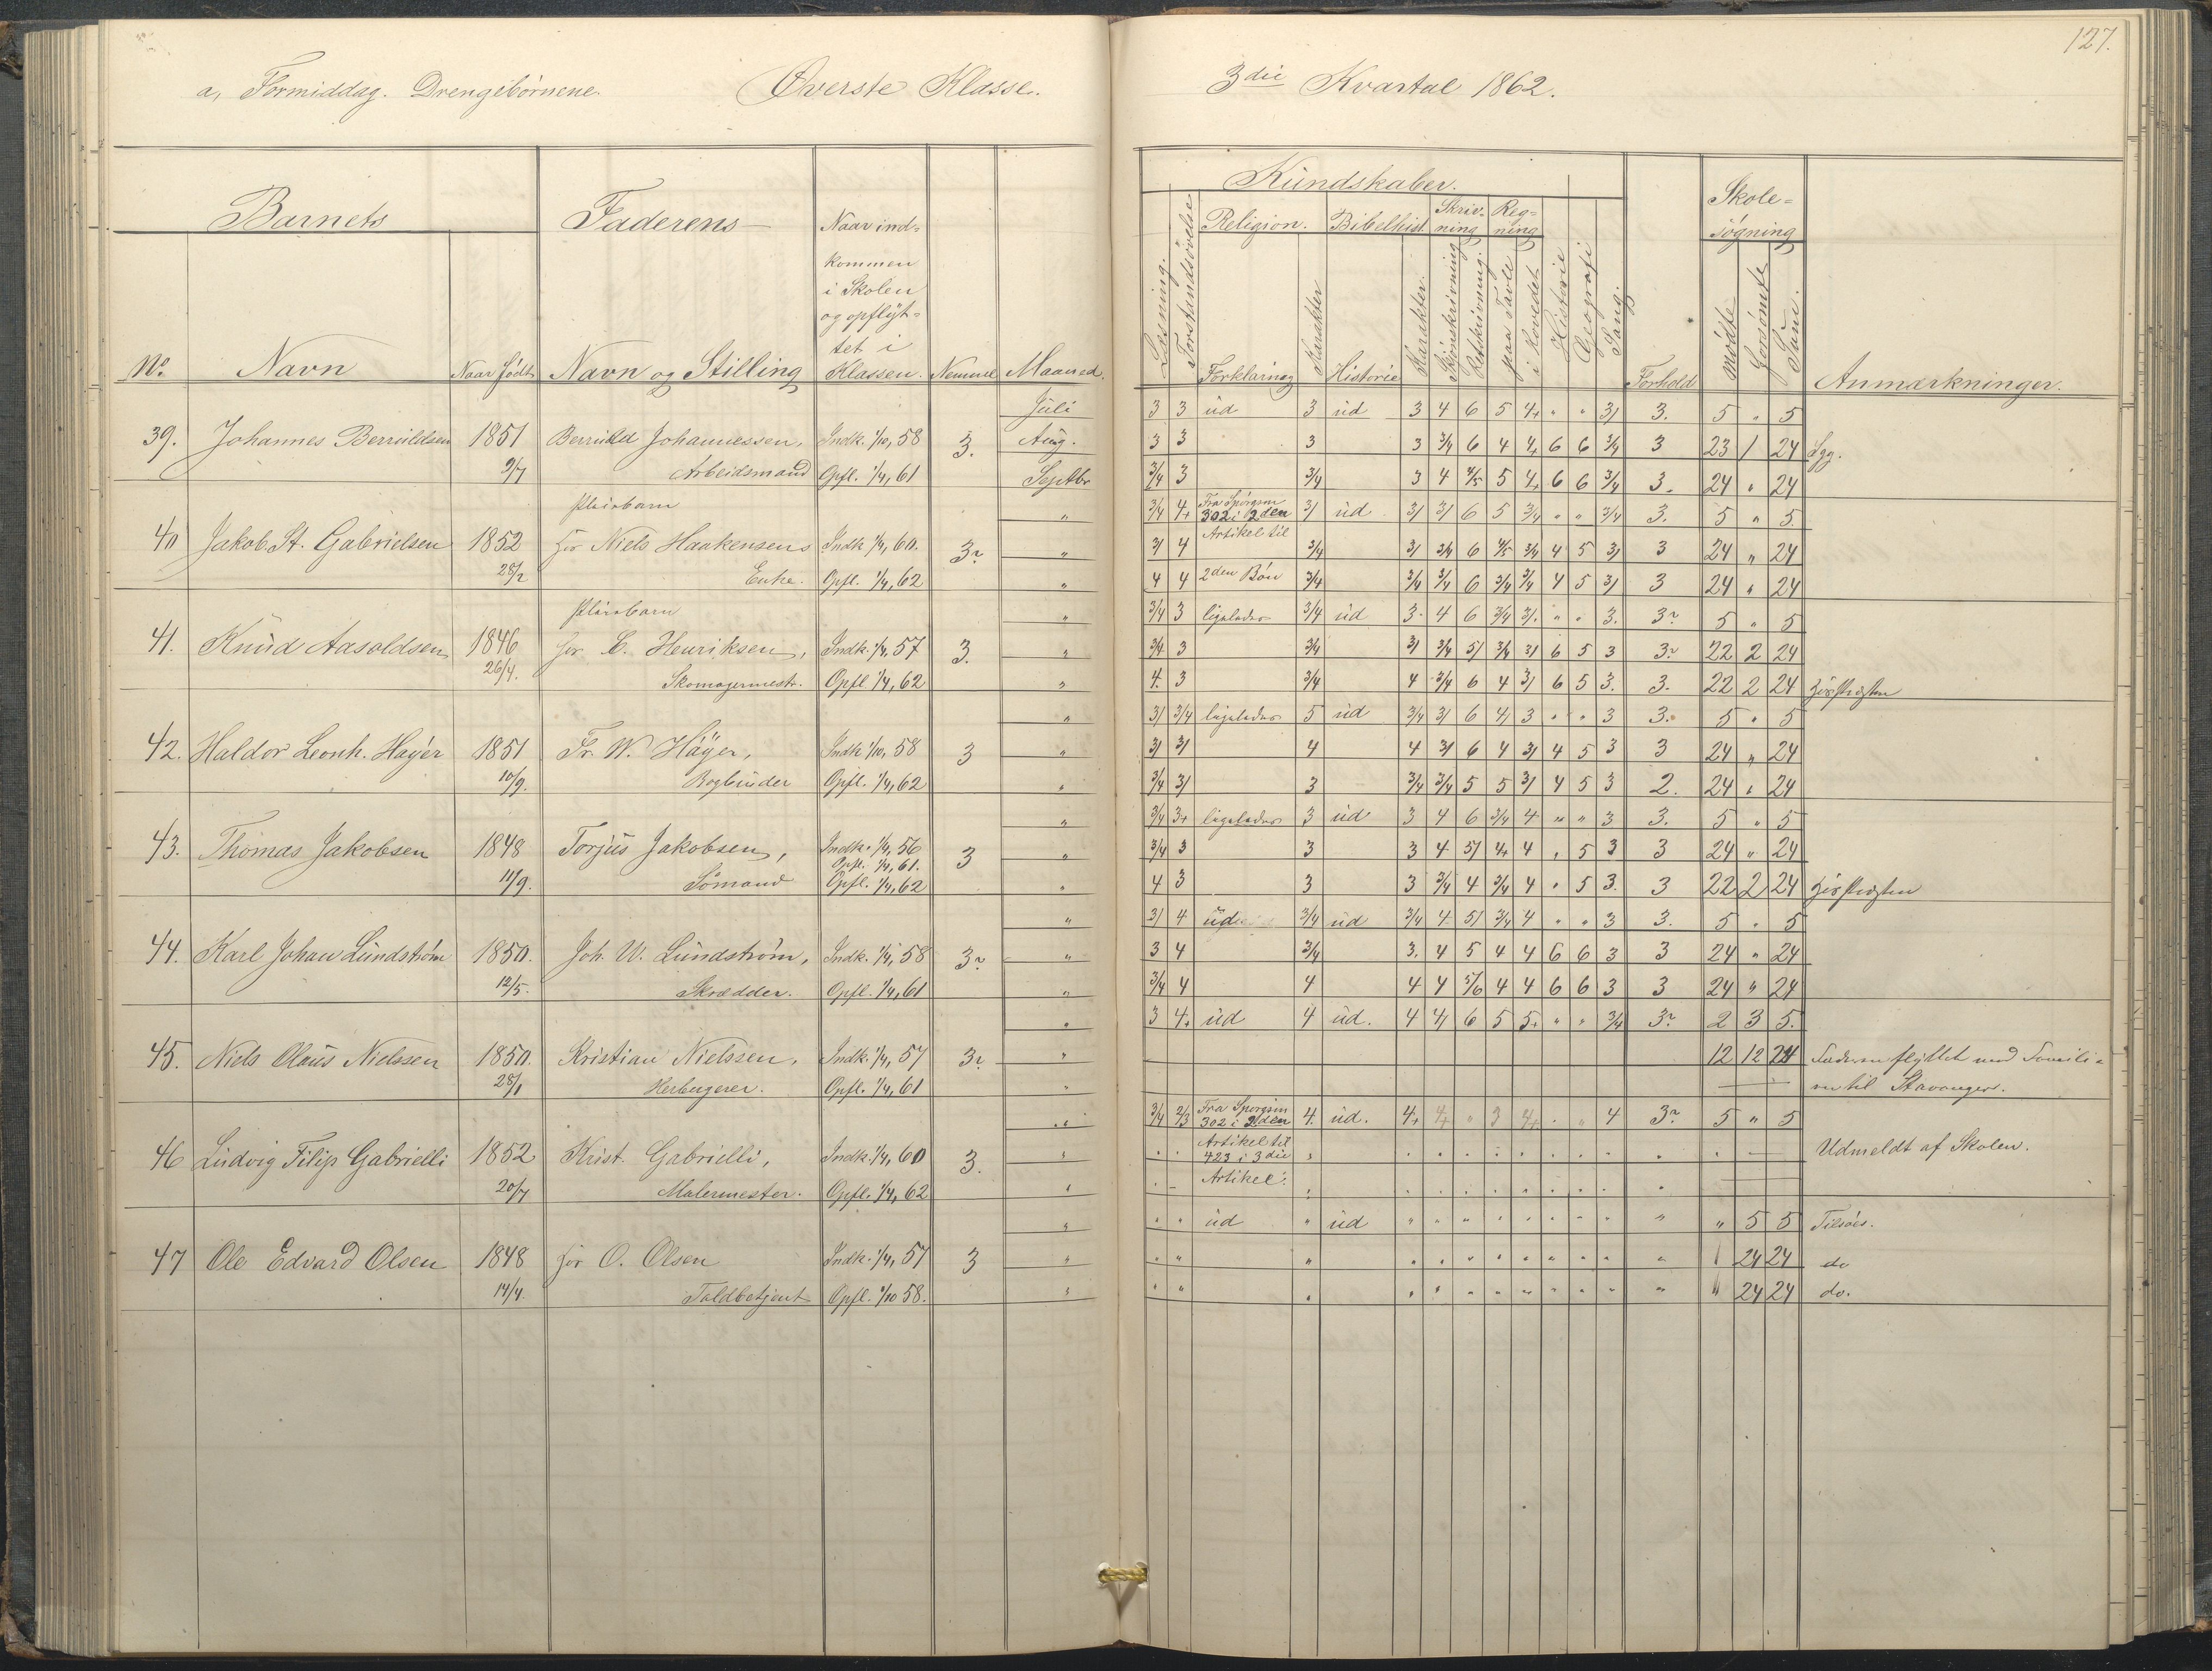 127.
a, Formiddag. Drengebørnene. Øverste Klasse. 3die Kvartal 1862.
Barnets Faderens Naar ind-
kommen
i Skolen
og opflyt-
tet i
Klassen.
No. Navn Naar født Navn og Stilling Nemme Maaned.
Kundskaber.
Læsning. Forstandsøvelse. Religion. Bibelhist. Skriv-
ning Reg-
ning Historie Geografi Sang.
Forklaring Karakter Historie Karakter. Skjønskrivning Retskrivning. paa Tavle i Hovedet
Forhold
Skole-
søgning
Mødte Forsømte Sum.
Anmærkninger.
Juli 3 3 ud 3 ud 3 4 6 5 4+ " " 3/ 3. 5 " 5
39. Johannes Berruldsen 1851 Berruld Johannessen, Indk. 1/10, 58 3. Aug. 3 3 3 3 3/4 6 4 4+ 6 6 3/4 3 23 1 24 Syg.
9/7 Arbeidsmand Opfl. 1/4, 61 Septbr 3/4 3 3/4 3 4 4/5 5 4+ 6 6 3/4 3. 24 " 24
Pleiebarn " 3/4 4+ Fra Spørgsm 302 i 2den 3/ ud 3/ 3/ 6 5 3/4 " " 3/4 3. 5 " 5.
40 Jakob St. Gabrielsen 1852 for Niels Haakensens Indk 1/4, 60. 3? " 3/ 4 Artikel til 3/4 3/ 3/4 6 4/5 3/4 4 5 3/ 3 24 " 24
28/2 Enke. Opfl. 1/4, 62 " 4 4 2den Bøn 3/4 3/4 3/4 6 3/4 3/4 4 5 3/ 3 24 " 24
Pleiebarn " 3/4 3 ligeledes 3/4 ud 3 4 6 3/4 3/ " " 3. 3? 5 " 5
41. Knud Aasoldsen 1846 for C. Henriksen, Indk. 1/4, 57 3. " 3/4 3 3/4 3/ 3/4 5/ 3/4 3/ 6 5 3 3? 22 2 24
26/4. Skomagermestr. Opfl 1/4, 62 " 4. 3 3/4 4 3/4 6 4 3/ 6 5 3. 3. 22 2 24
" 3/ 3/4 ligeledes 5 ud 3/4 3/ 6 4/ 3 " " 3 3. 5 " 5
42. Haldor Leonh. Høyer 1851 Fr. W. Høyer, Indk 1/10, 58 3 " 3/ 3/ 4 4 3/ 6 4 3/ 4 5 3 3 24 " 24
10/9. Bogbinder Opfl. 1/4, 62 " 3/4 3/ 3 3/4 3/4 5 5 3/ 4 5 3 2. 24 " 24
" 3/4 3+ ligeledes 3 ud 3 4 6 3/4 4 " " 3 3. 5 " 5
43. Thomas Jakobsen 1848 Torjus Jakobsen, Indk. 1/4, 56 3 " 3/4 3 3 3 4 5/ 4+ 4 " 5 3 3 24 " 24
Opfl. 1/4, 61.
11/9. Sømand Opfl. 1/4, 62 " 4 3 3 3 3/4 4 3/4 4 " 5 3. 3 22 2 24
" 3/ 4 ud 3/4 ud 3/4 4 5/ 3/4 4 " " 3 3. 5 " 5
44. Karl Johan Lundstrøm 1850. Joh. W. Lundstrøm, Indk. 1/4, 58 3? " 3 4 3/4 3. 4 5 4 4 6 6 3 3 24 " 24
12/5. Skrædder. Opfl. 1/4, 61 " 3/4 4 4 4 4 5/6 4 4 6 6 3 3 24 " 24
" 3 4+ ud 4 ud. 4 4/ 6 5 5+ " " 3/4 3? 2 3 5.
45. Niels Olaus Nielssen 1850. Kristian Nielssen, Indk. 1/4, 57 3? " 12 12 24 Faderen flyttet med Famili-
28/1 Herbergerer. Opfl. 1/4, 61 " en til Stavanger.
" 3/4 2/3 Fra Spørgsm 302 i 2den 4. ud. 4+ 4+ " 3 4+ " " 4 3? 5 " 5
46 Ludvig Filip Gabrielli 1852 Krist. Gabrielli, Indk. 1/4, 60 3. " Artikel til 423 i 3die Udmeldt af Skolen.
20/7 Malermester. Opfl. 1/4, 62 " Artikel.
" " " ud " ud " " " " " " " " " " 5 5 Tilsøes.
47 Ole Edvard Olsen 1848 for O. Olsen Indk. 1/4, 57 3 " " " " " " " " " " " " " " 24 24 do
14/4. Toldbetjent Opfl. 1/10 58. " " " " " " " " " " " " " " " 24 24 do.